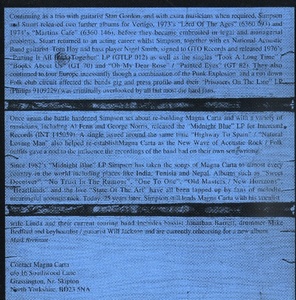 Continuing as a trio with guitarist Stan Gordon, and with extra musicians when required, Simpson
and Stuart released two further albums for Vertigo, 1973's "Lord Of The Ages" (6360 093) and
1974's "Martins Cafe" (6360 146), before they became embroiled in legal and managerial
problems. Stuart returned to an acting career whilst Simpson, together with ex National Acoustic
Band guitarist Tom Hoy and bass player Nigel Smith, signed to GTO Records and released 1976's
"Putting It All Back Together" LP (GTLP 012) as well as the singles "Took A Long Time"
"Books About Us" (GT 70) and "Oh My Dear Rosa" "Painted Eyes" (GT 87). They also
continued to tour Europe, incessantly though a combination of the Punk explosion and a run down
Folk club circuit affected the bread gig and press profile and their "Prisoners On The Line" LP
(Philips 9109229) was criminally overlooked by all but most die hard fans.
Once again the battle hardened Simpson set about re-building Magna Carta and with a variety of
musicians, including Al Fenn and George Norris, released the "Midnight Blue" LP for Intercord
Records (INT 145039). A single, issued around the same time "Highway To Spain" "Nature's
Loving Man" also helped to establish Magna Carta as the New Wave of Acoustic Rock / Folk
outfits gave a nod to the influence the recordings of the band had on their own songwriting.
Since 1982's "Midnight Blue" LP Simpson has taken the songs of Magna Carta to almost every
country in the world including places like India, Tunisia and Nepal. Albums such as "Sweet
Deceiver", "No Truth In The Rumour", "One To One", "Old Masters / New Horizons"
"Heartlands" and the live "State Of The Art" have all been lapped up by fans of melodic,
meaningful acoustic rock. Today, 25 years later, Simpson still leads Magna Carta with his vocalist
wife Linda and their current touring band includes bassist Jonathan Barrett, drummer Mike
keyboardist / guitarist Will Jackson and are currently rehearsing for a new album
Mark Brennan
Contact Magna Carta
c/o 16 Southwood Lane
Grassington, Nr. Skipton
North Yorkshire, BD23 5NA